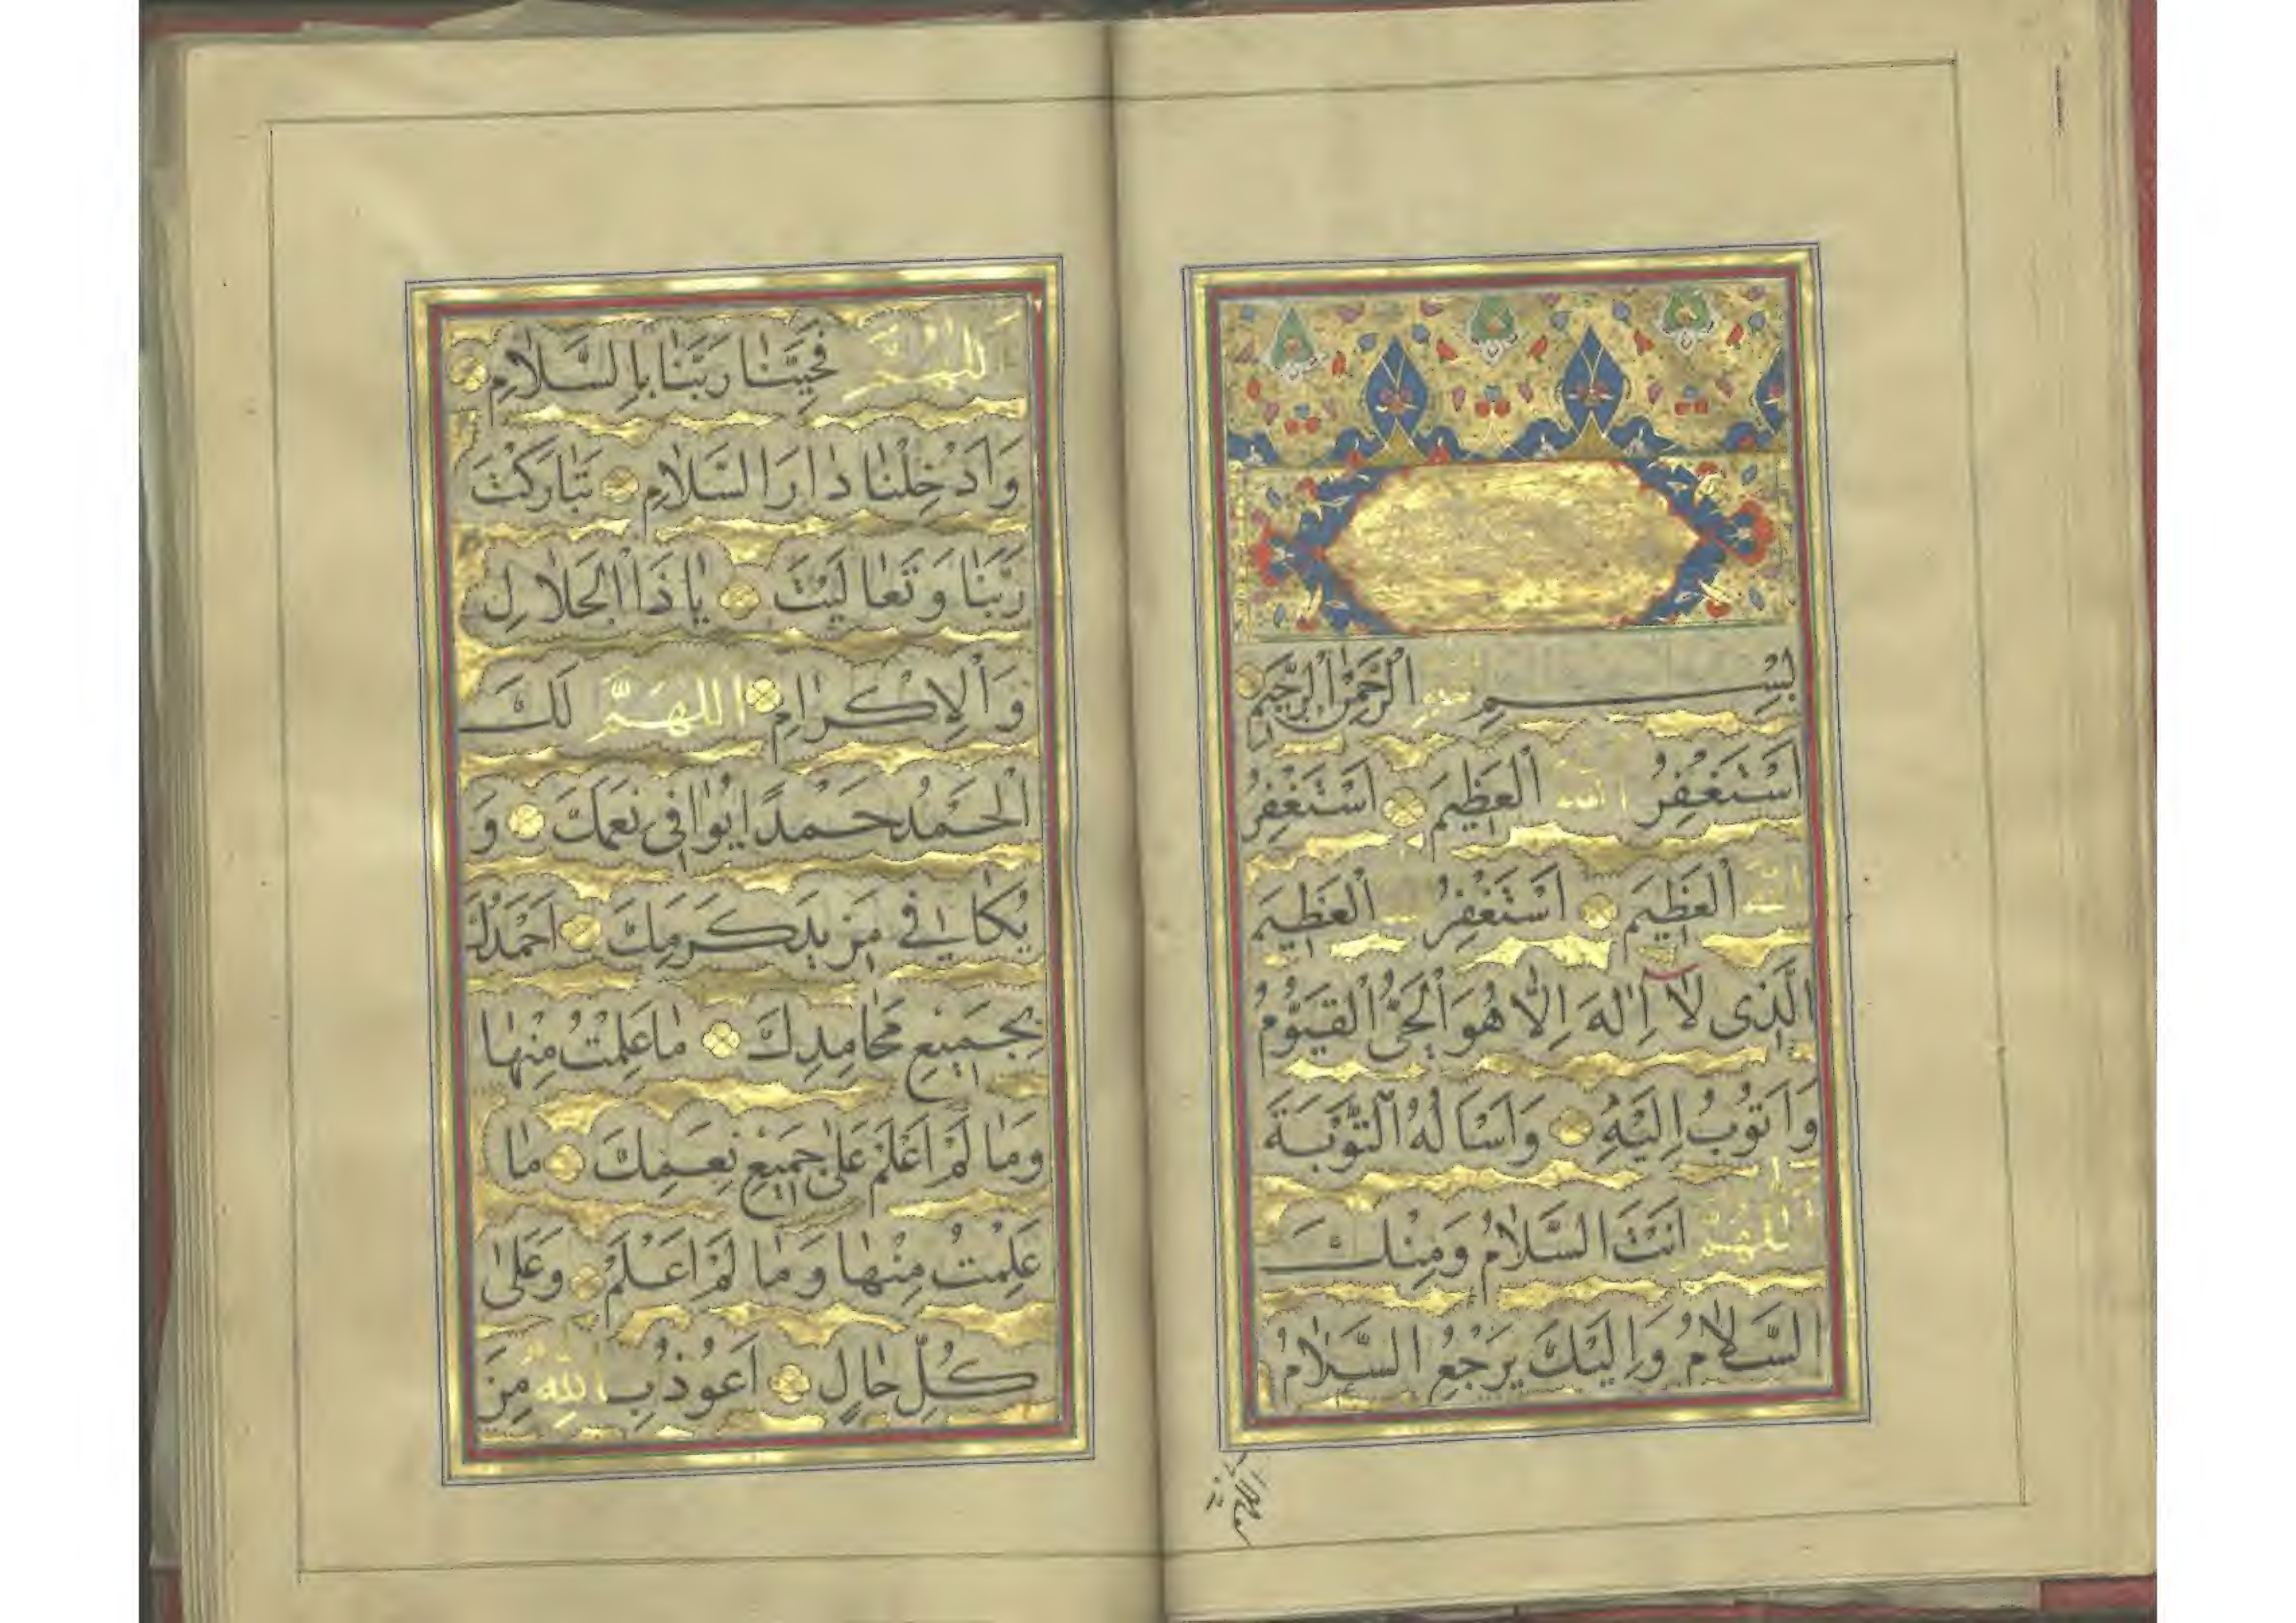 بِسْمِ اللهِ الرَّحْمٰنِ الرَّحِيمِ
اَسْتَغْفِرُ اللهَ الْعَظِيمَ اَسْتَغْفِرُ
اللهَ الْعَظِيمَ اَسْتَغْفِرُ اللهَ الْعَظِيمَ
الَّذِى لَآ اِلٰهَ اِلَّا هُوَ الْحَىُّ الْقَيُّومُ
وَاَتُوبُ اِلَيْهِ وَاَسْاَلُهُ التَّوْبَةَ
اَللّٰهُمَّ اَنْتَ السَّلَامُ وَمِنْكَ
السَّلَامُ وَاِلَيْكَ يَرْجِعُ السَّلَامُ
اَللّٰهُمَّ فَحَيِّنَا رَبَّنَا بِالسَّلَامِ
وَاَدْخِلْنَا دَارَ السَّلَامِ تَبَارَكْتَ
رَبَّنَا وَتَعَالَيْتَ يَا ذَا الْجَلَالِ
وَالْاِكْرَامِ اَللّٰهُمَّ لَكَ
الْحَمْدُ حَمْدًا يُوَافِى نِعَمَكَ وَ
يُكَافِى مَزِيدَ كَرَمِكَ اَحْمَدُكَ
بِجَمِيعِ مَحَامِدِكَ مَا عَلِمْتُ مِنْهَا
وَمَا لَمْ اَعْلَمْ عَلٰى جَمِيعِ نِعَمِكَ مَا
عَلِمْتُ مِنْهَا وَمَا لَمْ اَعْلَمْ وَعَلٰى
كُلِّ حَالٍ اَعُوذُ بِاللهِ مِنَ